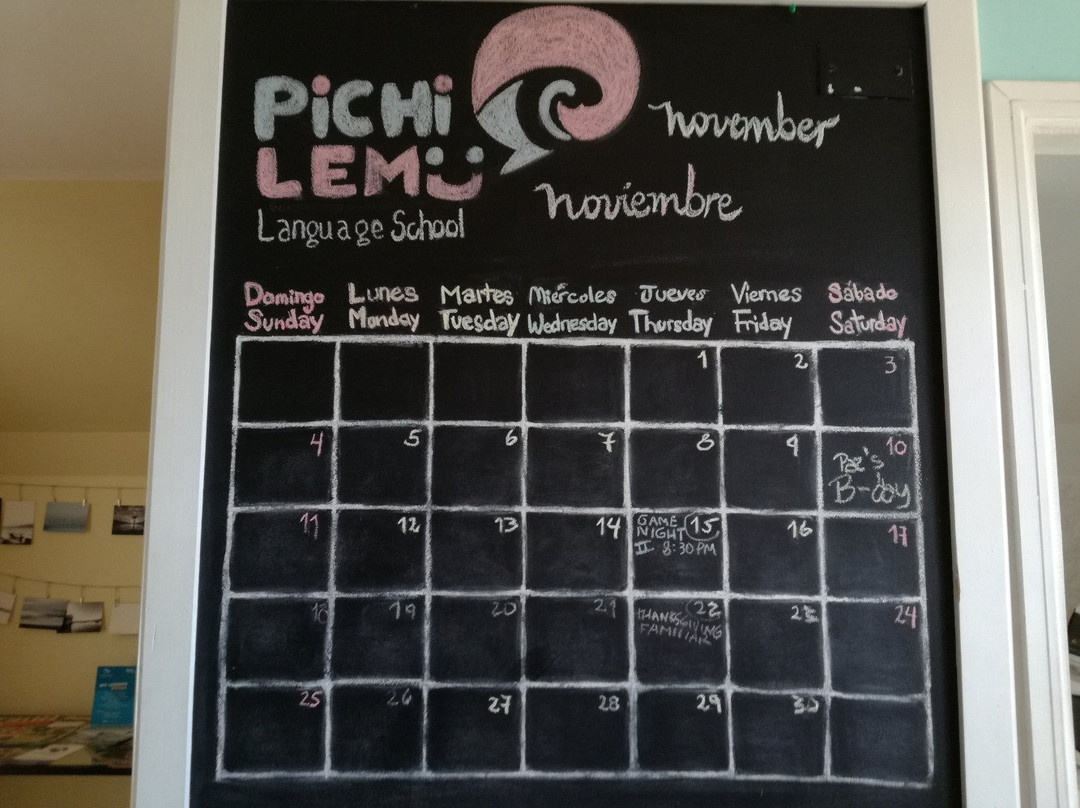 PiCHi
LEMU
Language School
november
noviembre
Domingo Lunes Martes Miércoles Jueves Viernes Sábado
Sunday Monday Tuesday Wednesday Thursday Friday Saturday
1 2 3
4 5 6 7 8 9 10
Paz's
B-day
11 12 13 14 15 16 17
GAME
NIGHT
II 8:30 PM
18 19 20 21 22 23 24
THANKSGIVING
FAMILIAR
25 26 27 28 29 30